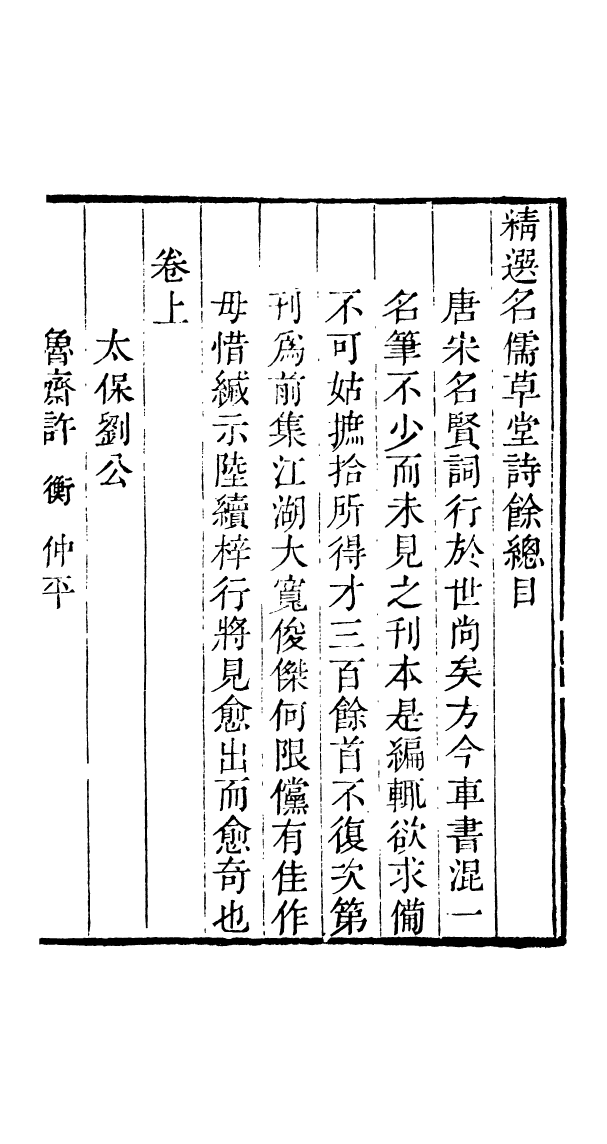 精選名儒草堂詩餘總目
唐宋名賢詞行於世尚矣方今車書混一
名筆不少而未見之刊本是編輒欲求備
不可姑摭拾所得才三百餘首不復次第
刊爲前集江湖大寬俊傑何限儻有佳作
毋惜緘示陸續梓行將見愈出而愈奇也
卷上
太保劉公
魯齋許衡仲平